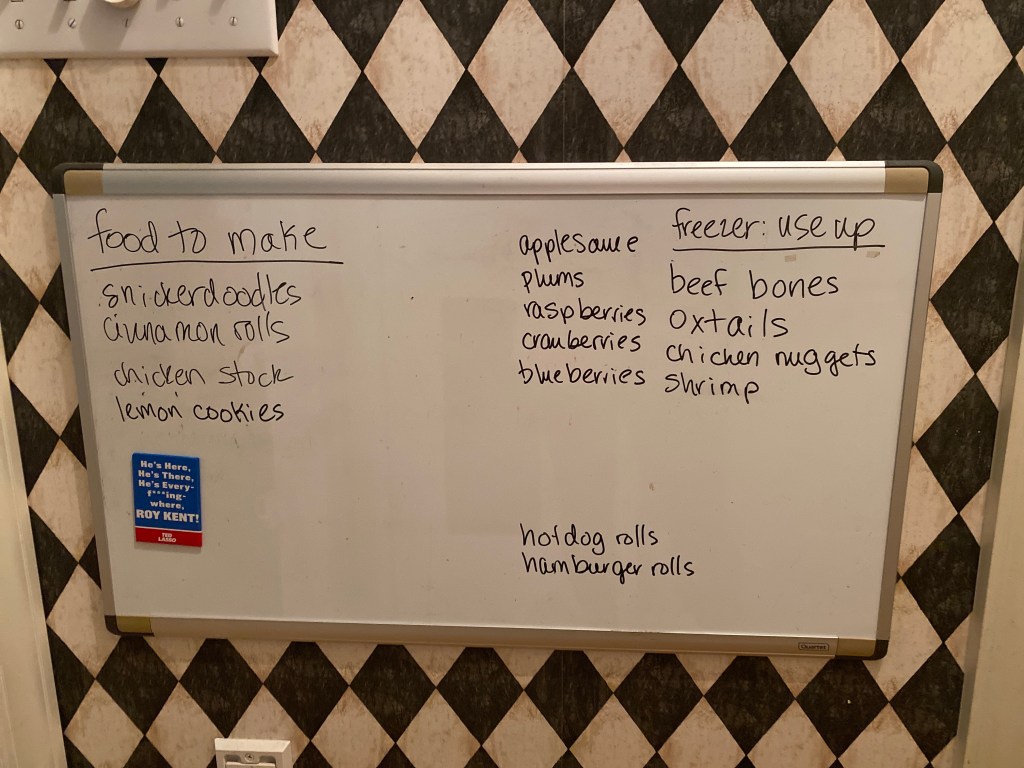 food to make
snickerdoodles
cinnamon rolls
chicken stock
lemon cookies
He's Here,
He's There,
He's Every-
f***ing-
where,
ROY KENT!
TED
LASSO
freezer: use up
applesauce
plums
raspberries
cranberries
blueberries
beef bones
oxtails
chicken nuggets
shrimp
hotdog rolls
hamburger rolls
Quartet